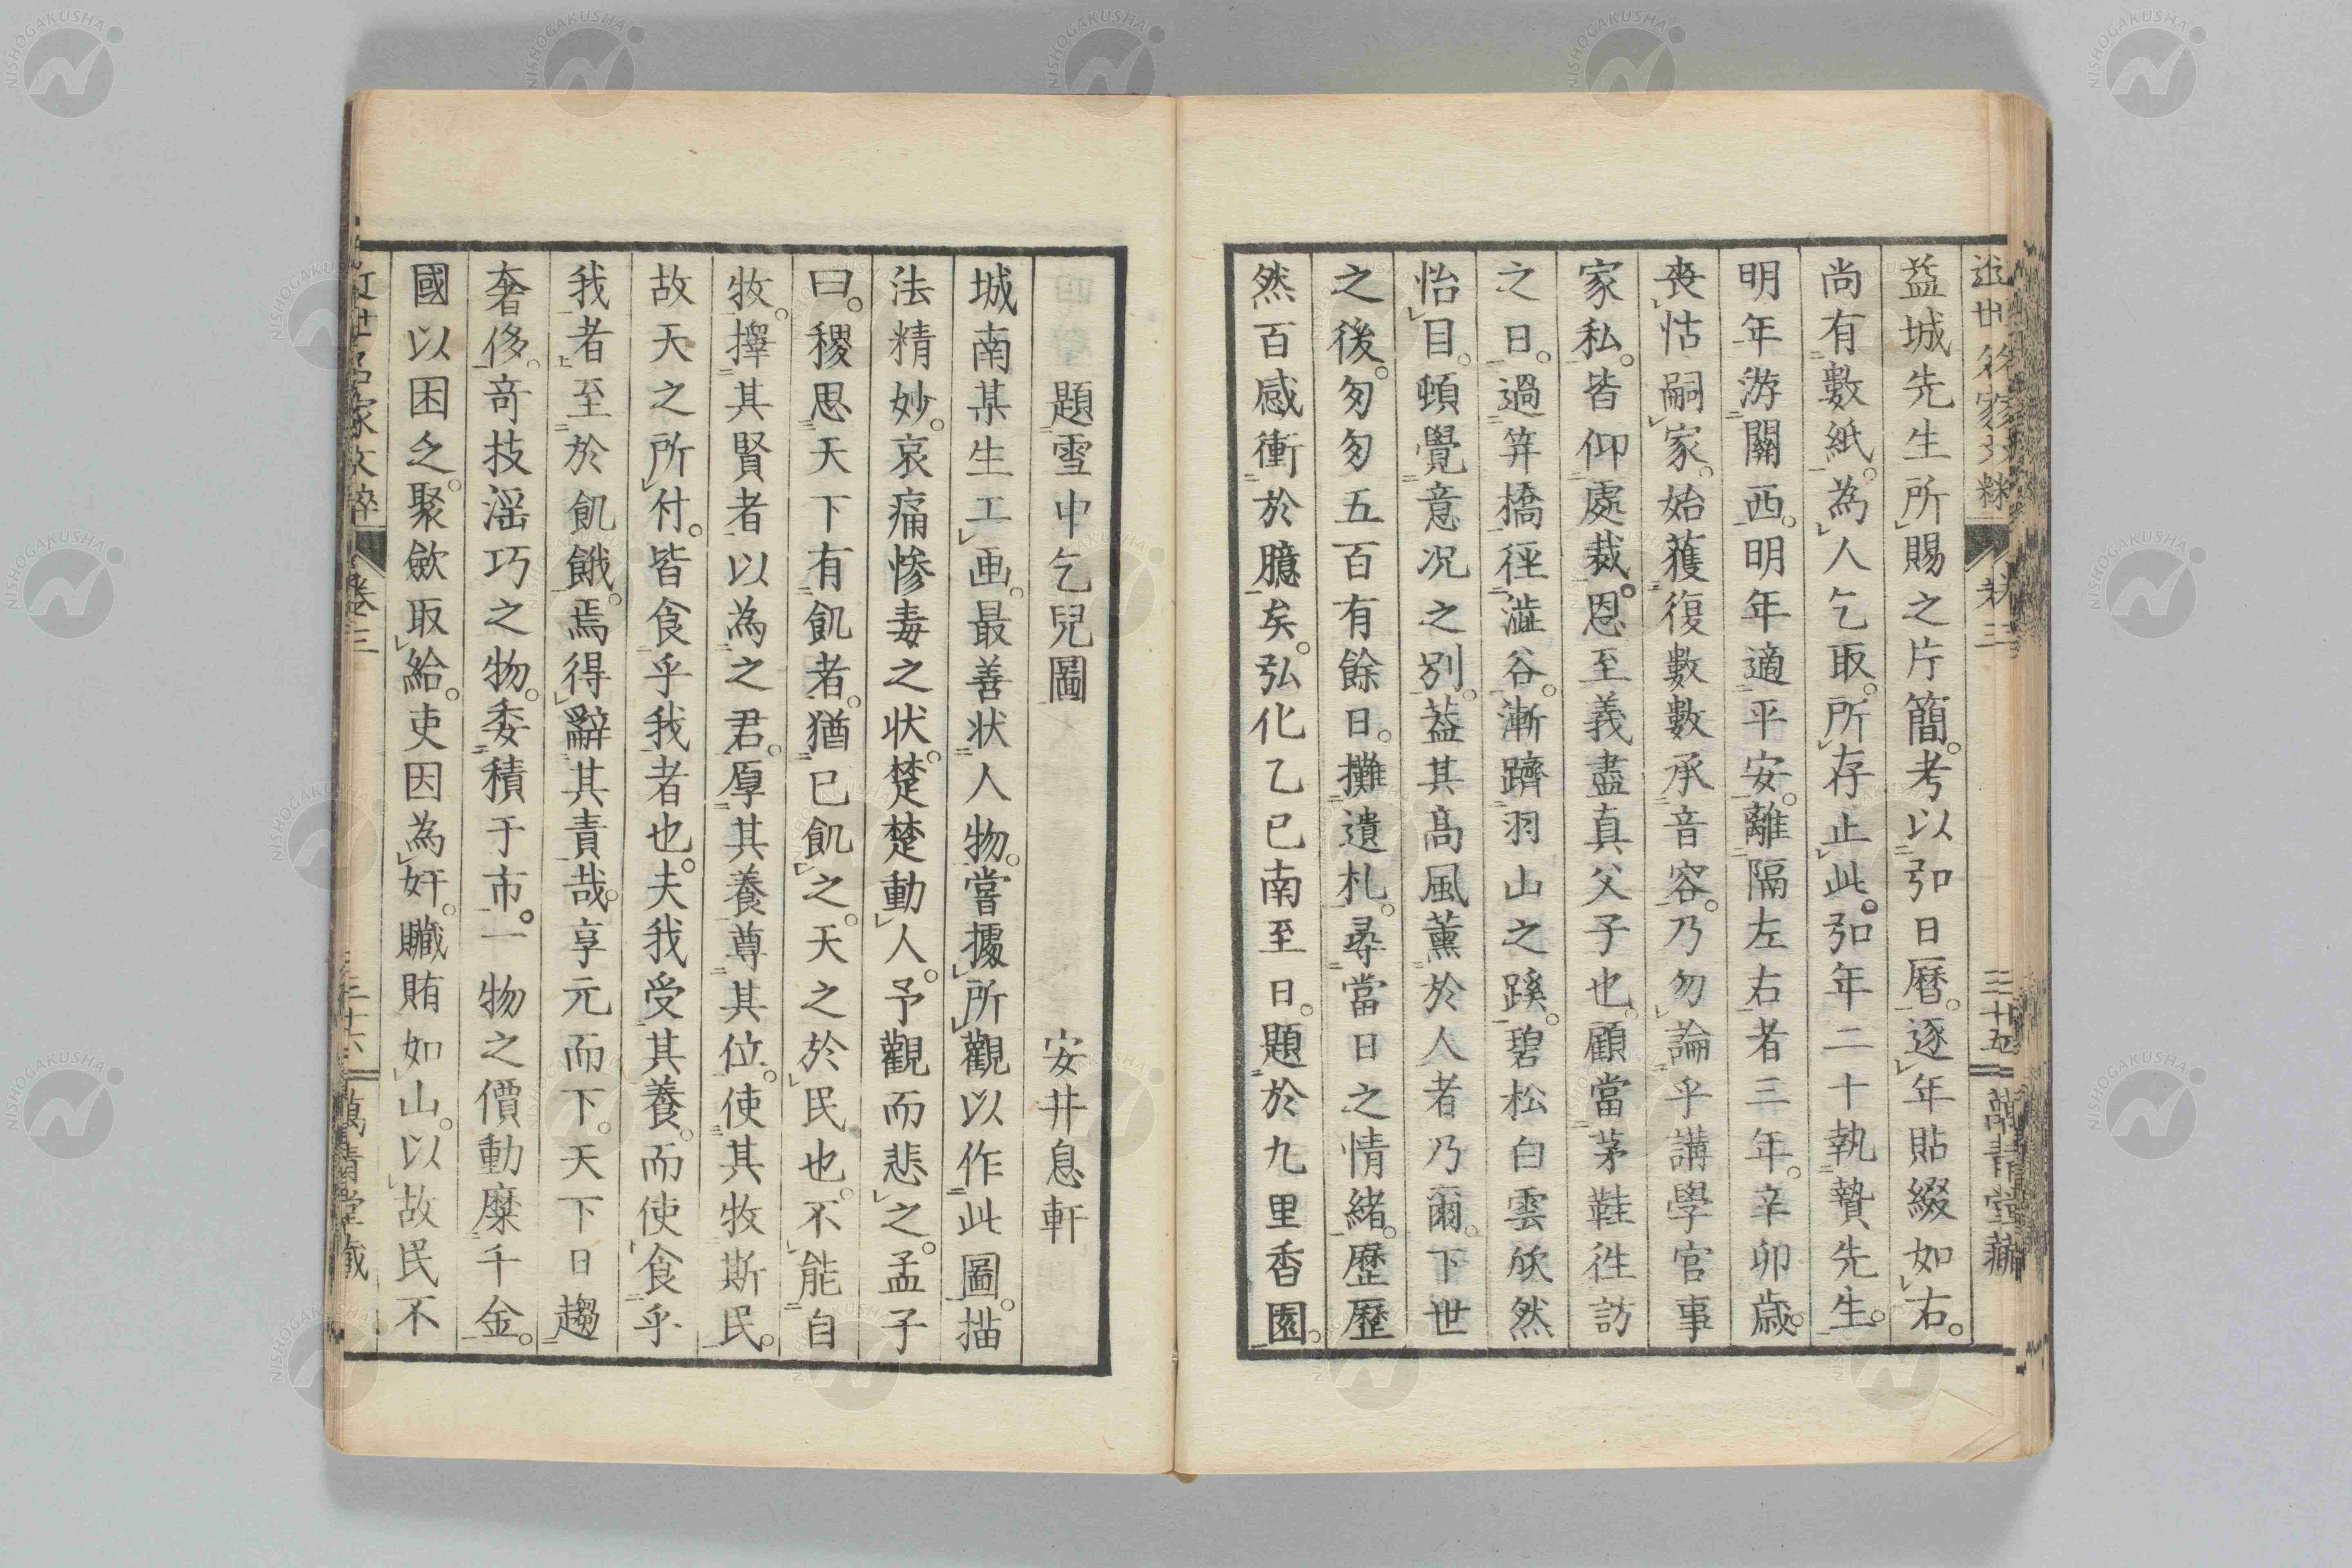 益城先生所賜之片簡。考以弘日曆。逐年貼綴如右。
尚有數紙。為人乞取。所存止此。弘年二十執贄先生。
明年游關西。明年適平安。離隔左右者三年。辛卯歲。
喪怙嗣家。始獲復數數承音容。乃勿論乎講學官事
家私。皆仰處裁。恩至義盡真父子也。顧當茅鞋徃訪
之日。過筓橋徑澁谷。漸躋羽山之蹊。碧松白雲欣然
怡目。頓覺意況之別。葢其高風薰於人者乃爾。下世
之後。匆匆五百有餘日。攤遺札。尋當日之情緒。歷歷
然百感衝於臆矣。弘化乙巳南至日。題於九里香園。
近世名家文粹
卷三
三十五
萬青堂藏
題雪中乞兒圖
安井息軒
城南某生工画。最善状人物。嘗據所觀以作此圖。描
法精妙。哀痛慘毒之状。楚楚動人。予觀而悲之。孟子
曰。稷思天下有飢者。猶已飢之。天之於民也。不能自
牧。擇其賢者以為之君。厚其養尊其位。使其牧斯民。
故天之所付。皆食乎我者也。夫我受其養。而使食乎
我者至於飢餓。焉得辭其責哉。享元而下。天下日趨
奢侈。奇技滛巧之物。委積于市。一物之價動糜千金。
國以困乏。聚斂取給。吏因為奸。贓賄如山。以故民不
近世名家文粹
卷三
三十六
萬青堂藏
NISHOGAKUSHA